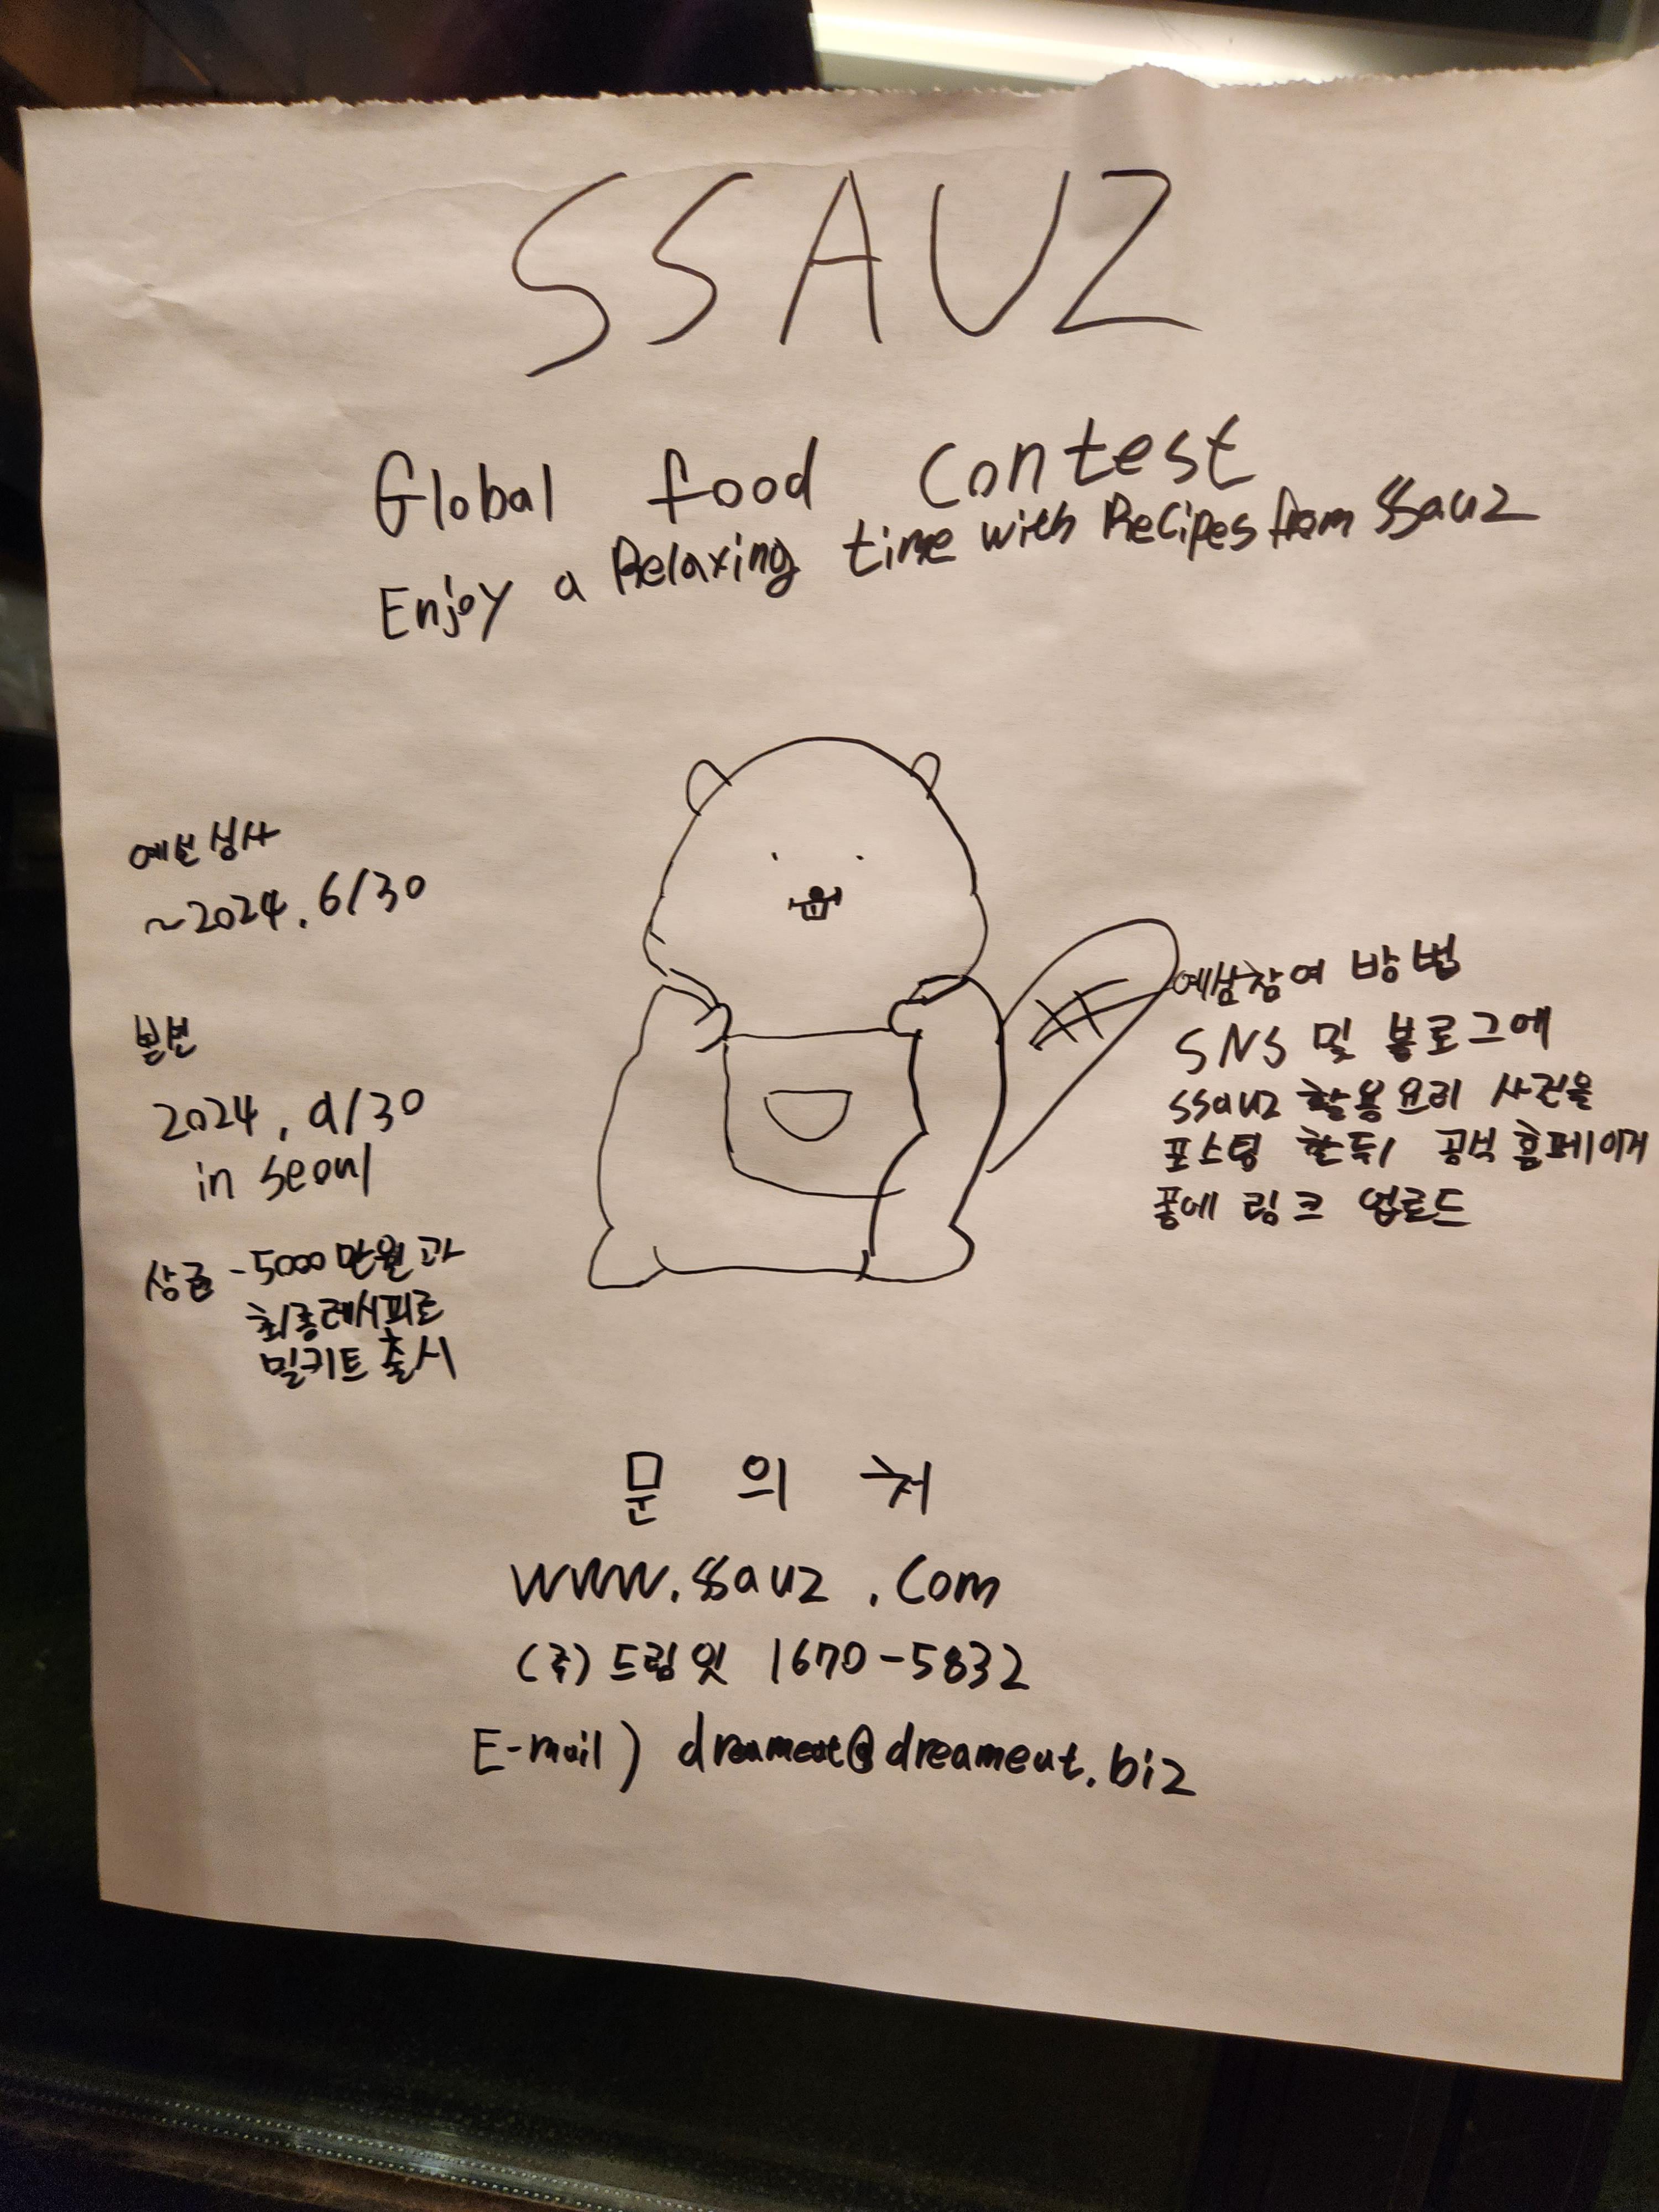 SSAUZ
Global food contest
Enjoy a Relaxing time with Recipes from SSauz
예선 심사
~2024. 6/30
본선
2024. 9/30
in seoul
상금 - 5000만원과
최종레시피로
밀키트 출시
참여 방법
SNS 및 블로그에
ssauz 활용요리 사진을
포스팅 한 뒤 공식 홈페이지
폼에 링크 업로드
문 의 처
www.ssauz.com
(주) 드림잇 1670-5832
E-mail) dreameat@dreameat.biz